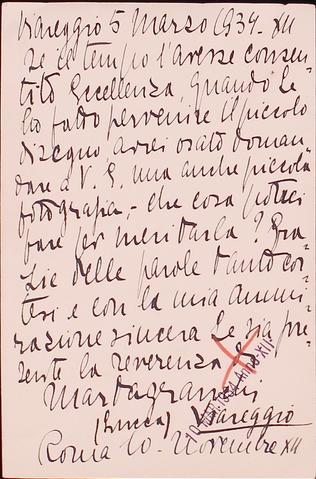 Viareggio 5 Marzo 1934. XII
Se il tempo l'avesse consen-
tito Eccellenza, quando Le
ho fatto pervenire il piccolo
disegno, avrei osato doman-
dare a V. E. una anche piccola
fotografia, - che cosa potrei
fare per meritarla? Gra-
zie delle parole tanto cor-
tesi e con la mia ammi-
razione sincera Le sia pre-
sente la reverenza di
Marta
(Lucca) Viareggio
10 MAR. 1934 Anno XII
Roma 10 - Novembre XII